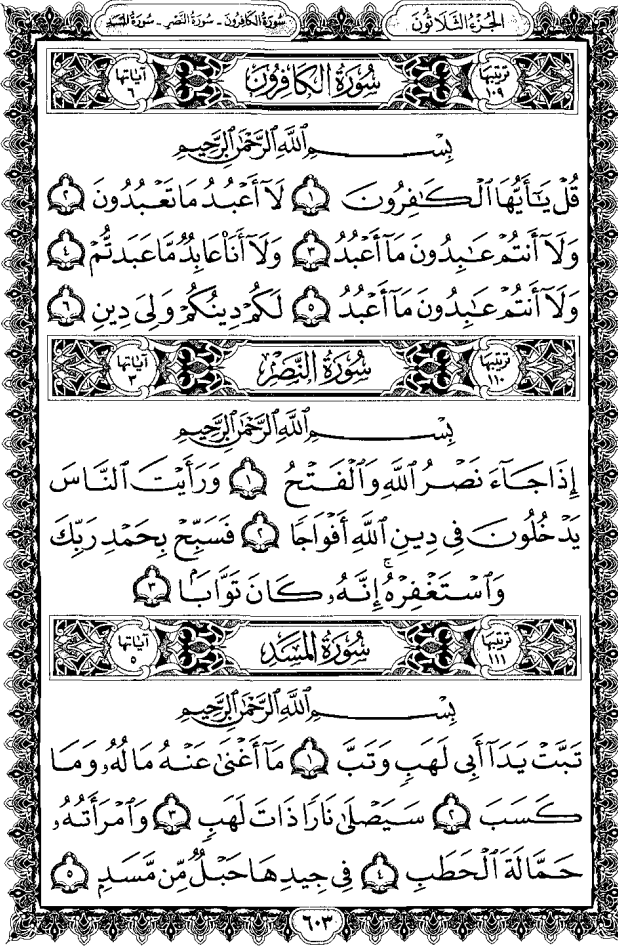 الجزء الثلاثون
سورة الكافرون - سورة النصر - سورة المسد
ترتيبها ١٠٩ سُورَةُ الكَافِرُون آياتها ٦
بِسْمِ ٱللَّهِ ٱلرَّحْمَٰنِ ٱلرَّحِيمِ
قُلْ يَٰٓأَيُّهَا ٱلْكَٰفِرُونَ ١ لَآ أَعْبُدُ مَا تَعْبُدُونَ ٢
وَلَآ أَنتُمْ عَٰبِدُونَ مَآ أَعْبُدُ ٣ وَلَآ أَنَا۠ عَابِدٌ مَّا عَبَدتُّمْ ٤
وَلَآ أَنتُمْ عَٰبِدُونَ مَآ أَعْبُدُ ٥ لَكُمْ دِينُكُمْ وَلِىَ دِينِ ٦
ترتيبها ١١٠ سُورَةُ النَّصْر آياتها ٣
بِسْمِ ٱللَّهِ ٱلرَّحْمَٰنِ ٱلرَّحِيمِ
إِذَا جَآءَ نَصْرُ ٱللَّهِ وَٱلْفَتْحُ ١ وَرَأَيْتَ ٱلنَّاسَ
يَدْخُلُونَ فِى دِينِ ٱللَّهِ أَفْوَاجًا ٢ فَسَبِّحْ بِحَمْدِ رَبِّكَ
وَٱسْتَغْفِرْهُ ۚ إِنَّهُۥ كَانَ تَوَّابًۢا ٣
ترتيبها ١١١ سُورَةُ المَسَد آياتها ٥
بِسْمِ ٱللَّهِ ٱلرَّحْمَٰنِ ٱلرَّحِيمِ
تَبَّتْ يَدَآ أَبِى لَهَبٍ وَتَبَّ ١ مَآ أَغْنَىٰ عَنْهُ مَالُهُۥ وَمَا
كَسَبَ ٢ سَيَصْلَىٰ نَارًا ذَاتَ لَهَبٍ ٣ وَٱمْرَأَتُهُۥ
حَمَّالَةَ ٱلْحَطَبِ ٤ فِى جِيدِهَا حَبْلٌ مِّن مَّسَدٍۭ ٥
٦٠٣